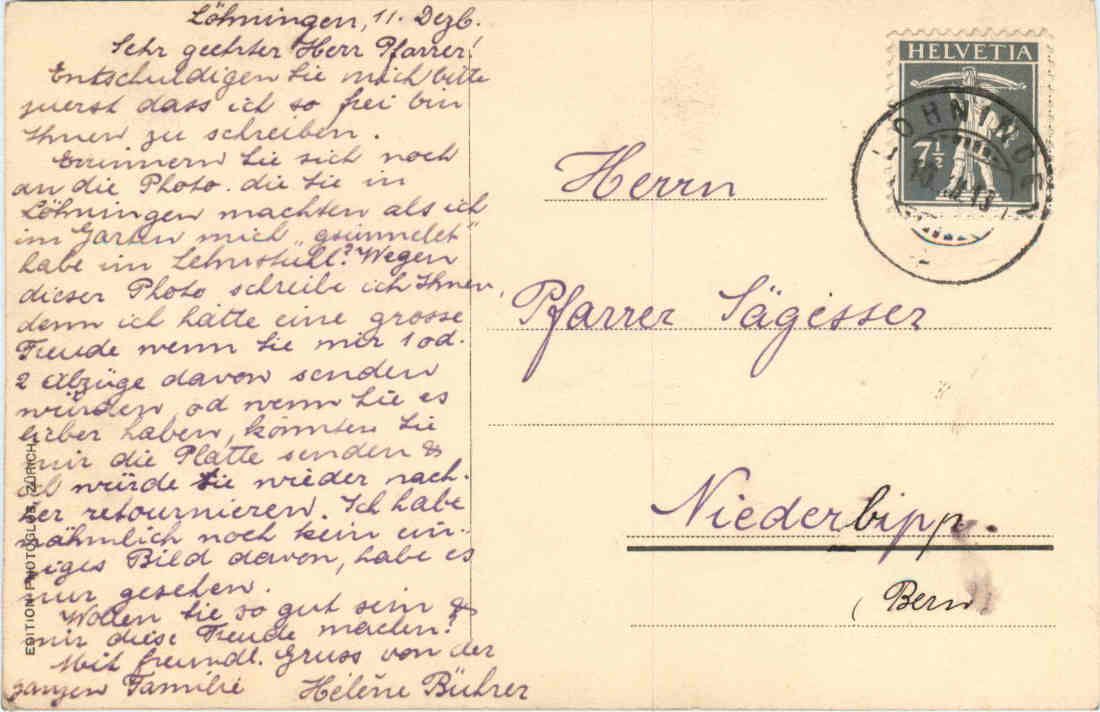 Löhningen, 11. Dezb.
Sehr geehrter Herr Pfarrer!
Entschuldigen Sie mich bitte
zuerst dass ich so frei bin
Ihnen zu schreiben.
Erinnern Sie sich noch
an die Photo. die Sie in
Löhningen machten als ich
im Garten mich „gsünnelet"
habe im Lehnstuhl? Wegen
dieser Photo schreibe ich Ihnen,
denn ich hätte eine grosse
Freude wenn Sie mir 1 od.
2 Abzüge davon senden
würden, od wenn Sie es
lieber haben, könnten Sie
mir die Platte senden &
ich würde sie wieder nach-
her retournieren. Ich habe
nähmlich noch kein ein-
ziges Bild davon, habe es
nur gesehen.
Wollen Sie so gut sein &
mir diese Freude machen?
Mit freundl. Gruss von der
ganzen Familie Hélène Bührer
EDITION PHOTOGLOB, ZÜRICH
HELVETIA
7½
Herrn
Pfarrer Sägesser
Niederbipp.
(Bern)